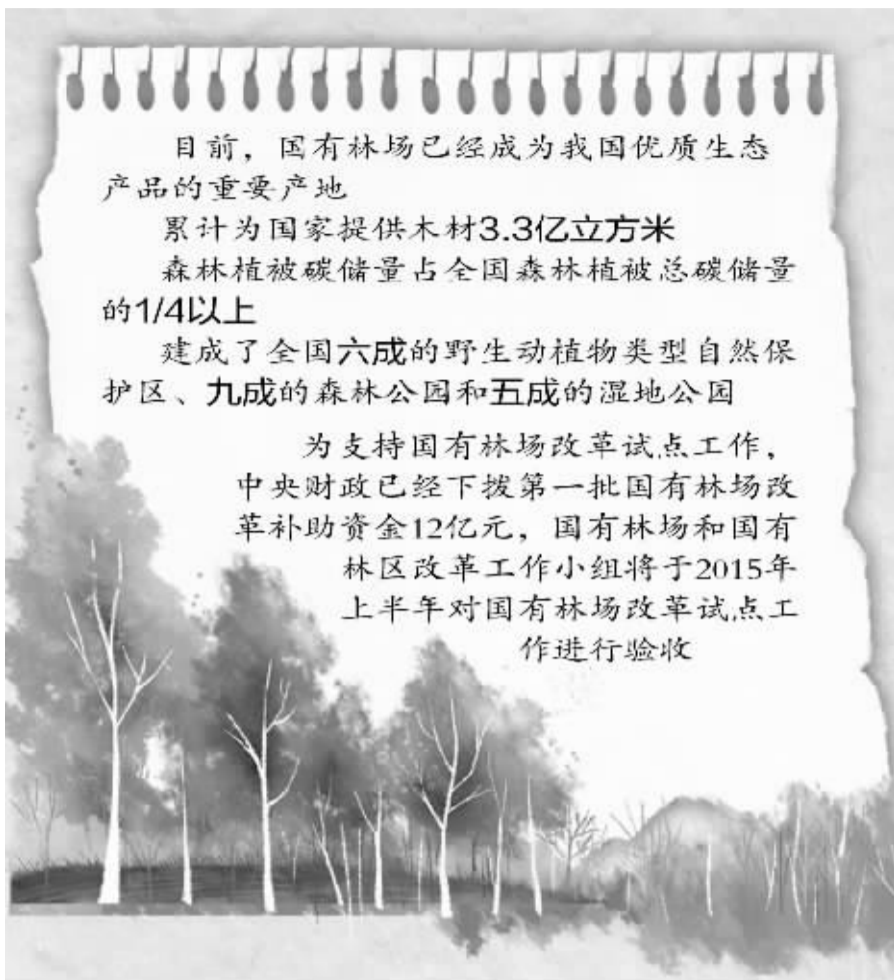 目前，国有林场已经成为我国优质生态
产品的重要产地
累计为国家提供木材3.3亿立方米
森林植被碳储量占全国森林植被总碳储量
的1/4以上
建成了全国六成的野生动植物类型自然保
护区、九成的森林公园和五成的湿地公园
为支持国有林场改革试点工作，
中央财政已经下拨第一批国有林场改
革补助资金12亿元，国有林场和国有
林区改革工作小组将于2015年
上半年对国有林场改革试点工
作进行验收